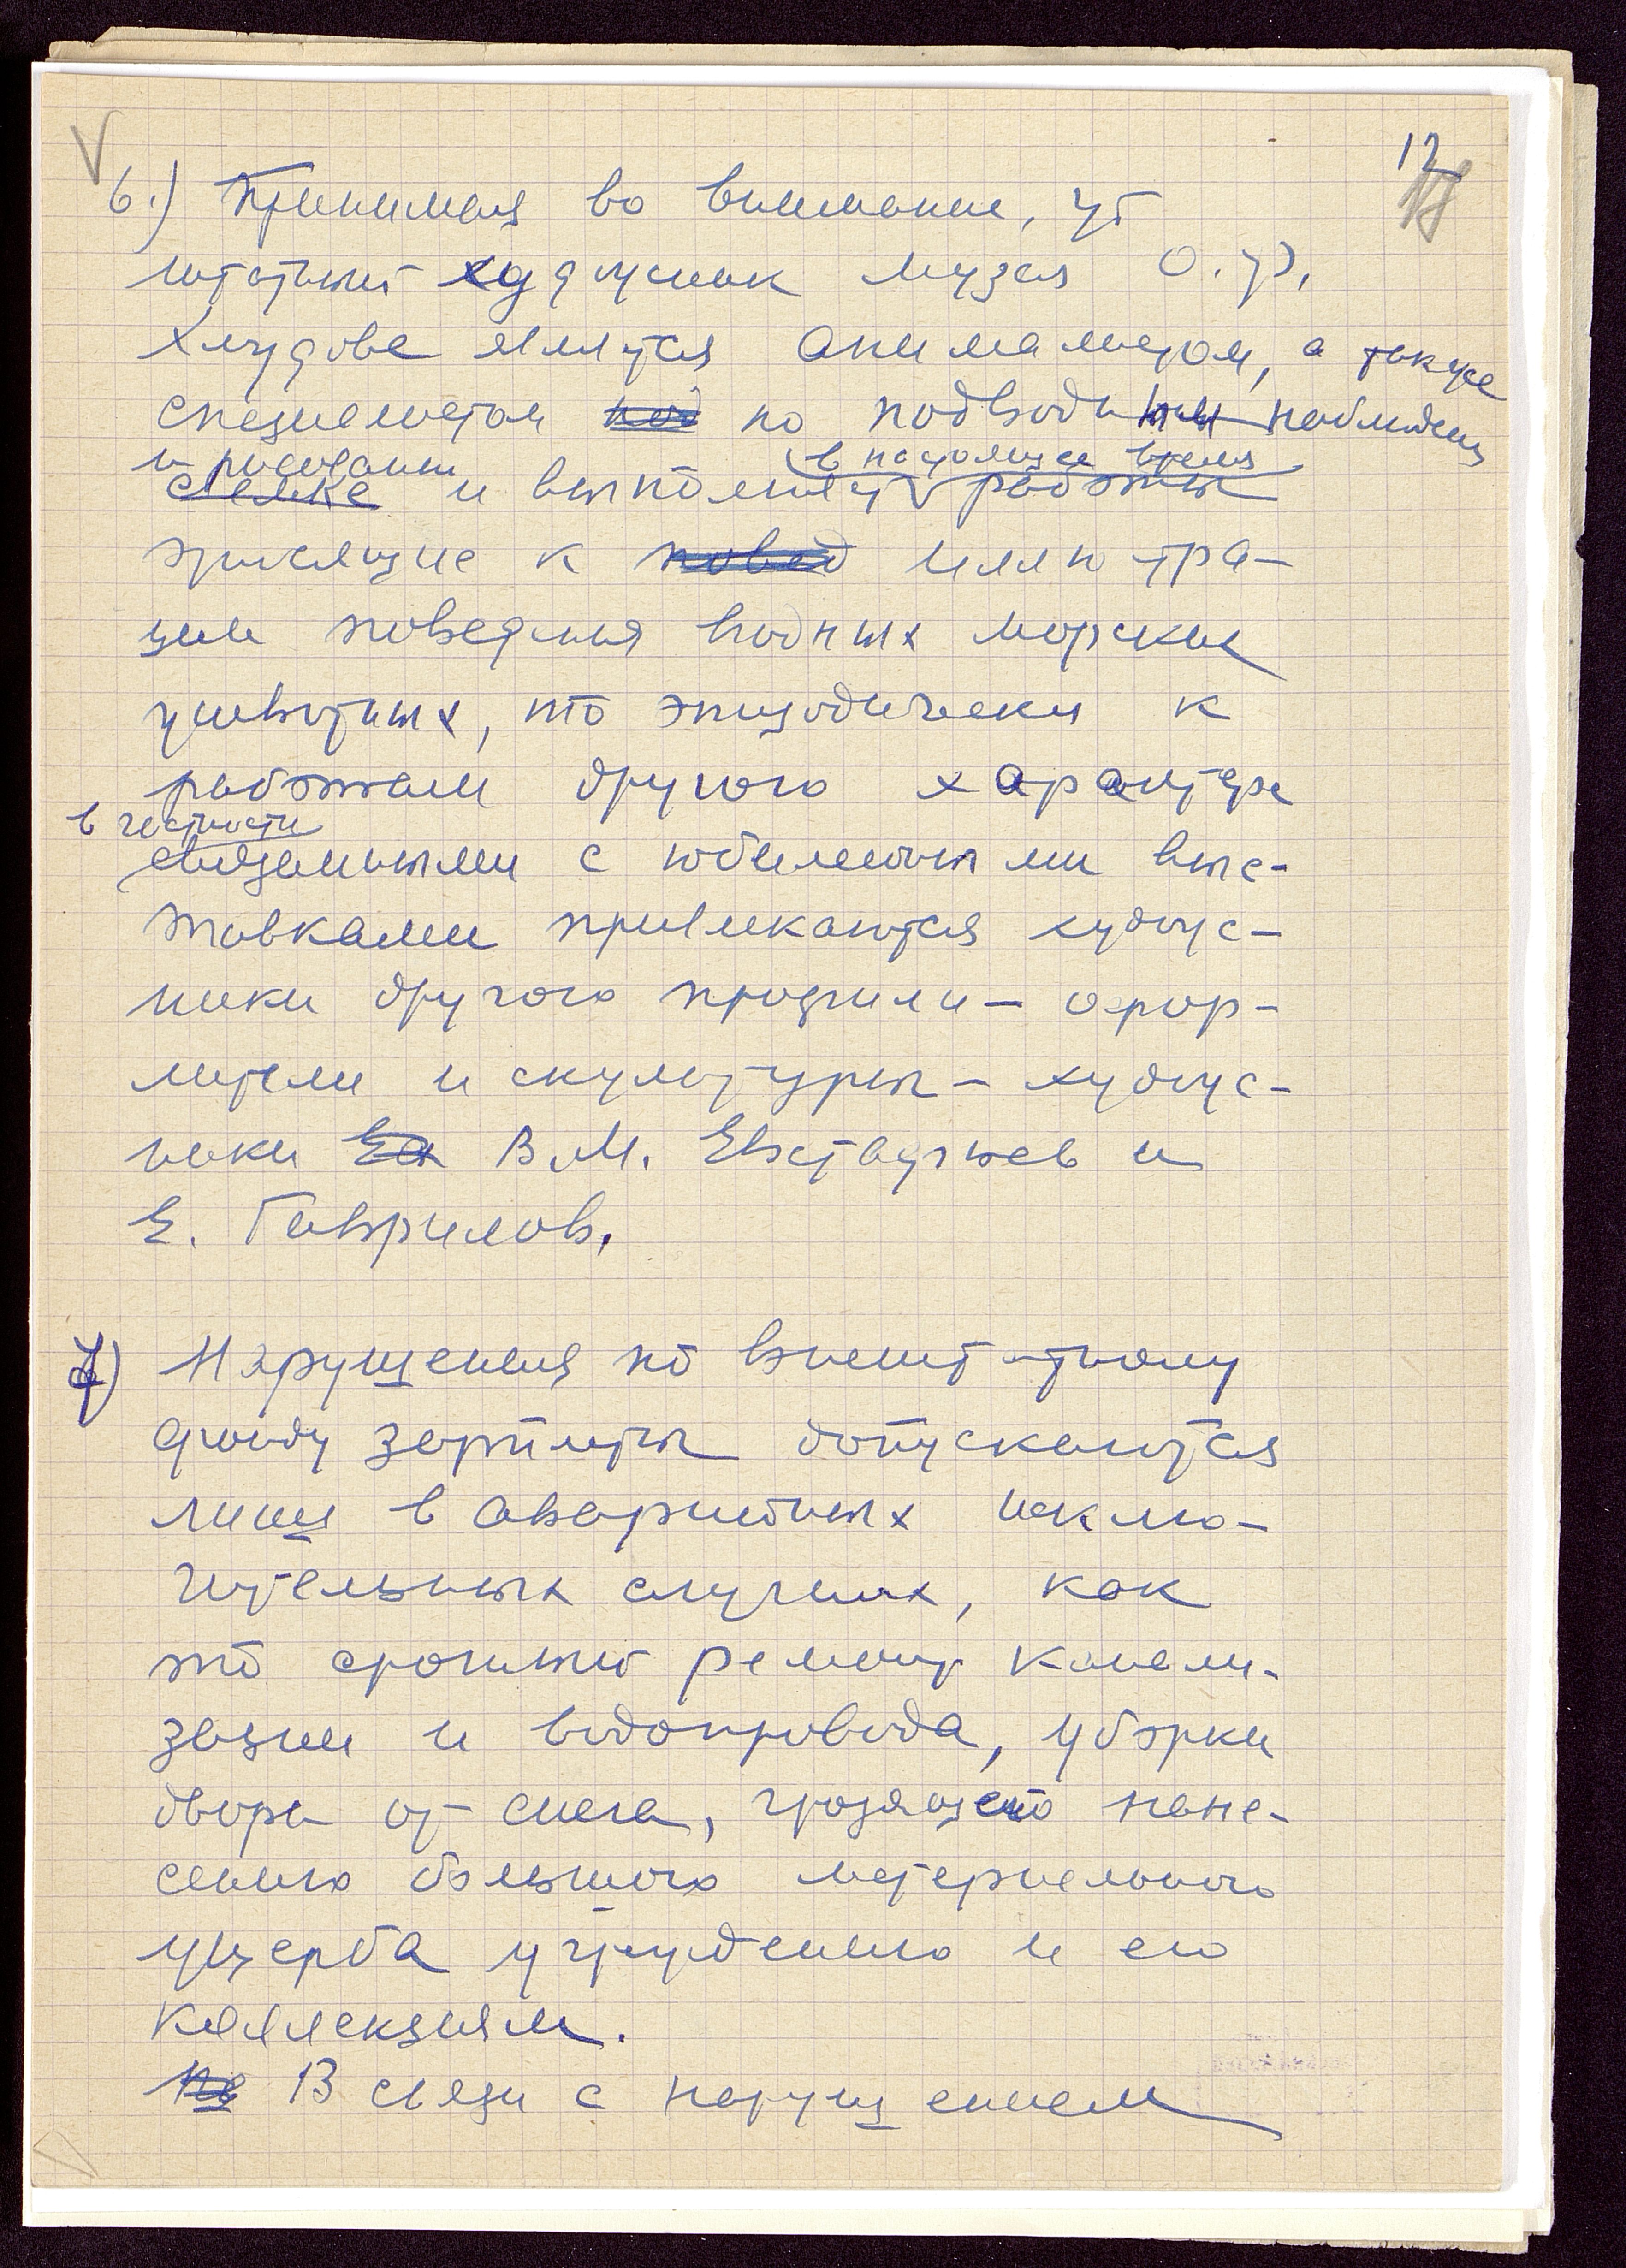 12
6.) Принимая во внимание, чт
штатный художник музея О.Ф.
Хлудова является анималистом, а также
специалистом по подводным наблюдениям
и рисованию в настоящее время
и выполняет работы
относящиеся к иллюстра-
ции поведения водных морских
животных, то эпизодически к
работам другого характера
в частности
связанными с юбилейными выс-
тавками привлекаются худож-
ники другого профиля — офор-
мители и скульпторы — худож-
ники В.М. Евстафьев и
Е. Гаврилов.
7) Нарушения по внештатному
фонду зарплаты допускаются
лишь в аварийных исклю-
чительных случаях, как
то срочный ремонт канали-
зации и водопровода, уборки
двора от снега, грозящего нане-
сению большого материального
ущерба учреждению и его
коллекциям.
В связи с нарушением